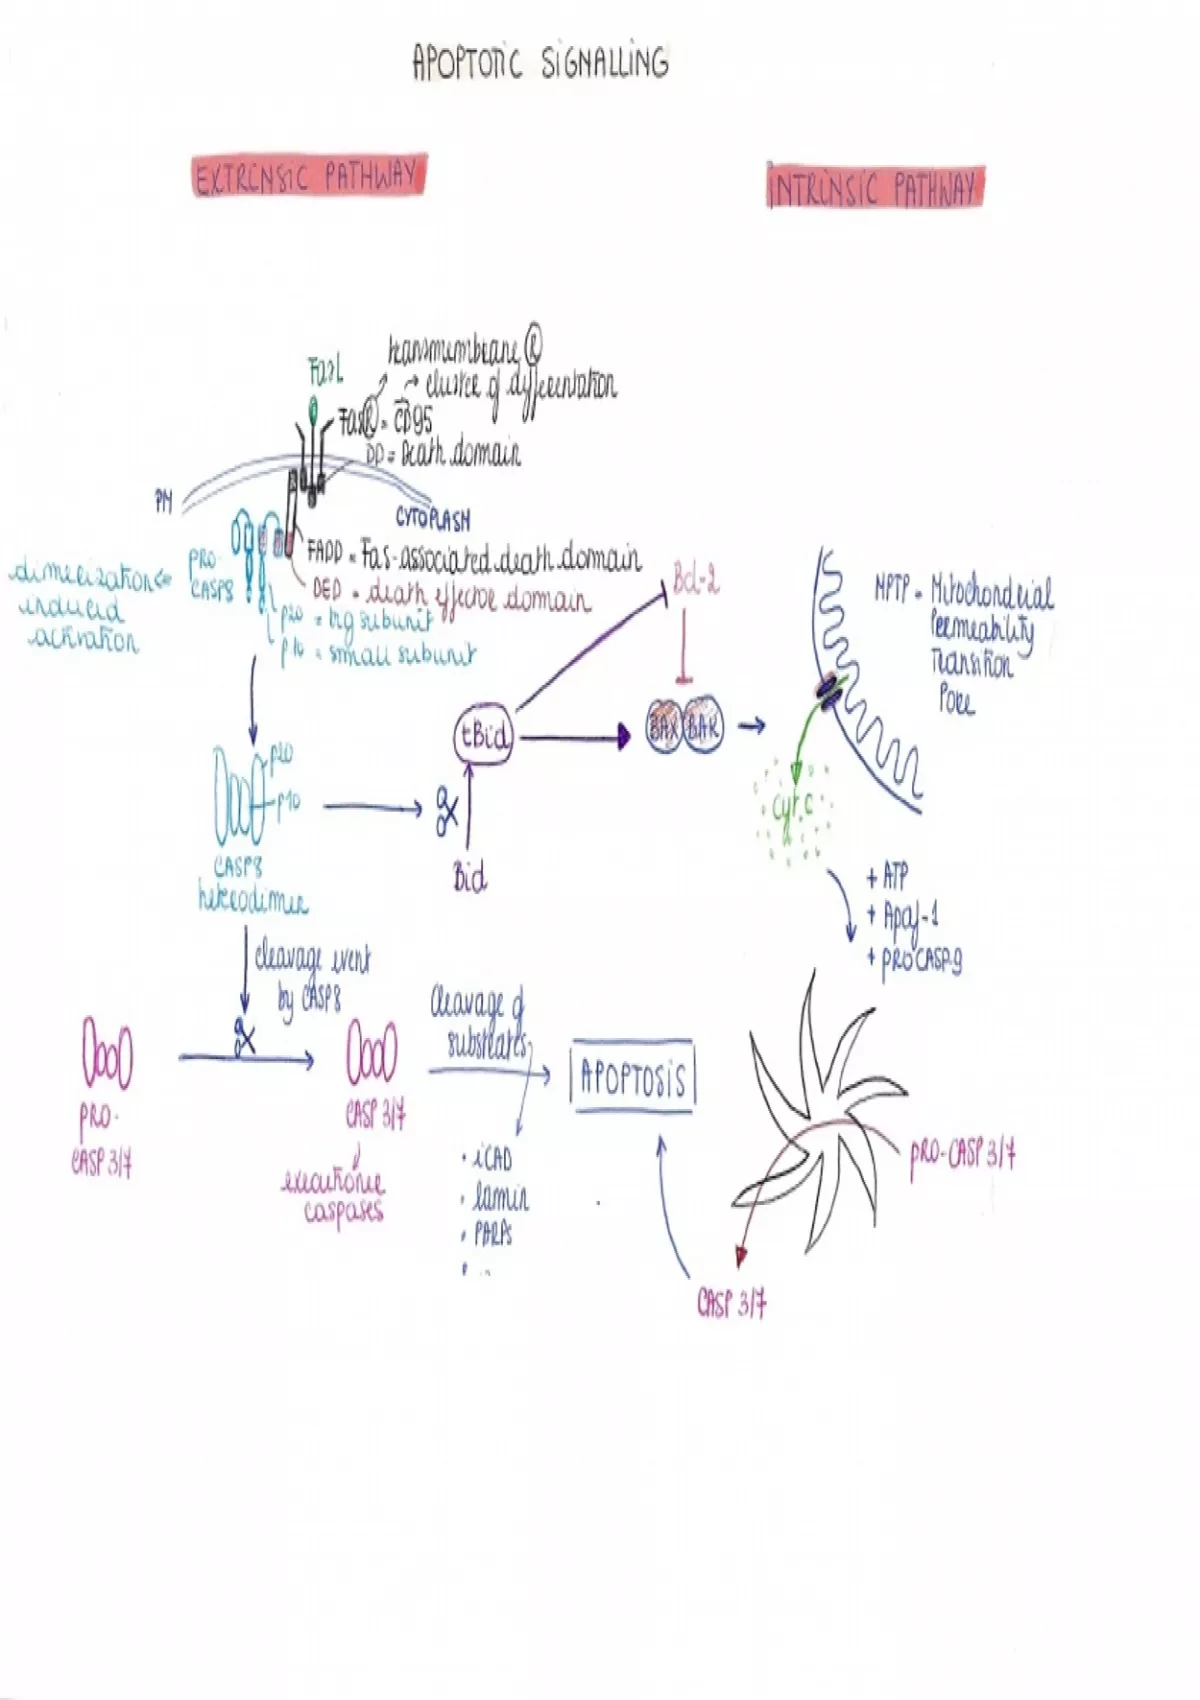 APOPTOTIC SIGNALLING
EXTRINSIC PATHWAY
INTRINSIC PATHWAY
FasL
transmembrane R
→ cluster of differentiation
FasR = CD95
DD = Death domain
PM
CYTOPLASM
FADD = Fas-associated death domain
DED = death effector domain
PRO-
CASP8
dimerization
induced
activation
p20 = big subunit
p10 = small subunit
Bcl-2
MPTP = Mitochondrial
Permeability
Transition
Pore
tBid
BAX BAK
p20
p10
CASP8
heterodimer
Bid
cyt.c
+ ATP
+ Apaf-1
+ PROCASP9
cleavage event
by CASP8
Cleavage of
substrates
PRO-
CASP 3/7
CASP 3/7
executioner
caspases
APOPTOSIS
• iCAD
• lamin
• PARPs
• ...
PRO-CASP 3/7
CASP 3/7